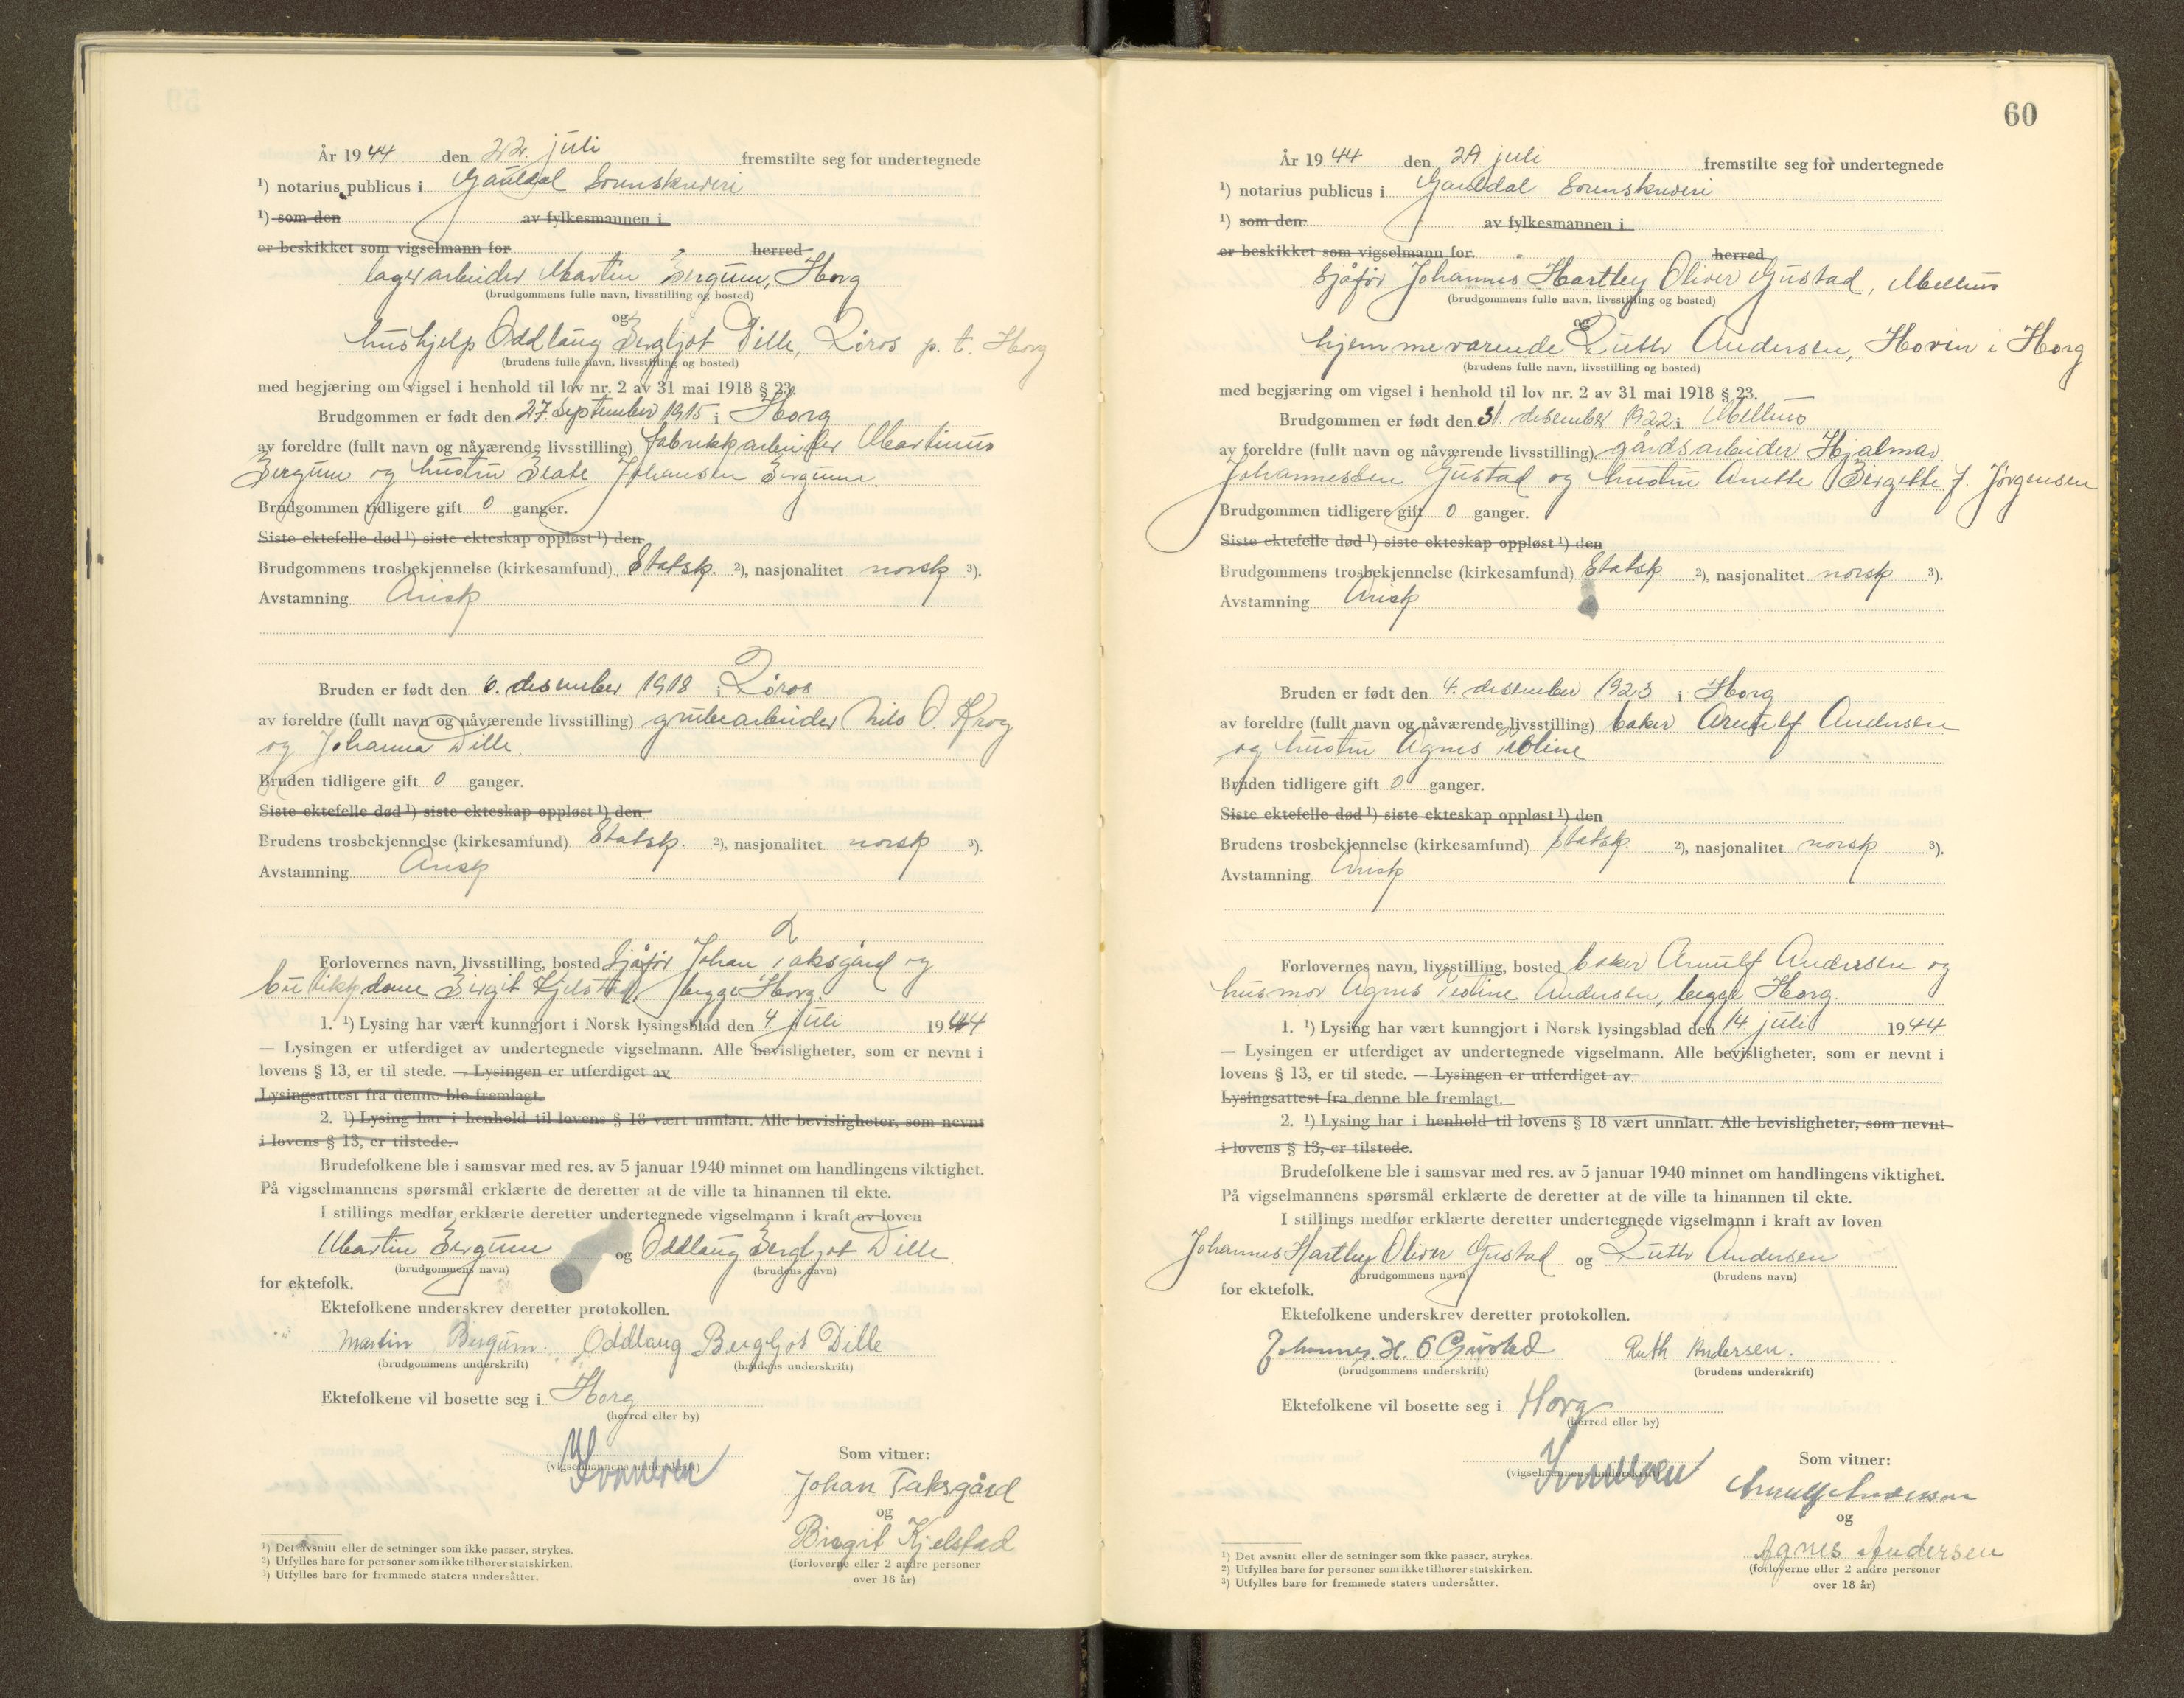 År 1944 den 22. juli fremstilte seg for undertegnede
¹) notarius publicus i Gauldal Sorenskriveri
¹) som den av fylkesmannen i
er beskikket som vigselmann for herred
lagerarbeider Martin Bergum, Horg
(brudgommens fulle navn, livsstilling og bosted)
og
hushjelp Oddlaug Bergljot Dille, Røros p. t. Horg
(brudens fulle navn, livsstilling og bosted)
med begjæring om vigsel i henhold til lov nr. 2 av 31 mai 1918 § 23.
Brudgommen er født den 27. september 1915 i Horg
av foreldre (fullt navn og nåværende livsstilling) fabrikkarbeider Martinus
Bergum og hustru Beate Johansen Bergum.
Brudgommen tidligere gift 0 ganger.
Siste ektefelle død ¹) siste ekteskap oppløst ¹) den
Brudgommens trosbekjennelse (kirkesamfund) Statsk. ²), nasjonalitet norsk ³).
Avstamning Arisk
Bruden er født den 6. desember 1918 i Røros
av foreldre (fullt navn og nåværende livsstilling) grubearbeider Nils O. Krog
og Johanna Dille.
Bruden tidligere gift 0 ganger.
Siste ektefelle død ¹) siste ekteskap oppløst ¹) den
Brudens trosbekjennelse (kirkesamfund) Statsk. ²), nasjonalitet norsk ³).
Avstamning Arisk
Forlovernes navn, livsstilling, bosted Sjåfør Johan Taksgård og
butikkdame Birgit Kjelstad, begge Horg.
1. ¹) Lysing har vært kunngjort i Norsk lysingsblad den 4 juli 1944
— Lysingen er utferdiget av undertegnede vigselmann. Alle bevisligheter, som er nevnt i
lovens § 13, er til stede. — Lysingen er utferdiget av
Lysingsattest fra denne ble fremlagt.
2. ¹) Lysing har i henhold til lovens § 18 vært unnlatt. Alle bevisligheter, som nevnt
i lovens § 13, er tilstede.
Brudefolkene ble i samsvar med res. av 5 januar 1940 minnet om handlingens viktighet.
På vigselmannens spørsmål erklærte de deretter at de ville ta hinannen til ekte.
I stillings medfør erklærte deretter undertegnede vigselmann i kraft av loven
Martin Bergum og Oddlaug Bergljot Dille
(brudgommens navn) (brudens navn)
for ektefolk.
Ektefolkene underskrev deretter protokollen.
Martin Bergum. Oddlaug Bergljot Dille
(brudgommens underskrift) (brudens underskrift)
Ektefolkene vil bosette seg i Horg
(herred eller by)
(vigselmannens underskrift)
Som vitner:
Johan Taksgård
og
Birgit Kjelstad
(forloverne eller 2 andre personer
over 18 år)
¹) Det avsnitt eller de setninger som ikke passer, strykes.
²) Utfylles bare for personer som ikke tilhører statskirken.
³) Utfylles bare for fremmede staters undersåtter.
60
År 1944 den 29 juli fremstilte seg for undertegnede
¹) notarius publicus i Gauldal Sorenskriveri
¹) som den av fylkesmannen i
er beskikket som vigselmann for herred
Sjåfør Johannes Hartley Oliver Gustad, Melhus
(brudgommens fulle navn, livsstilling og bosted)
og
hjemmeværende Ruth Andersen, Hovin i Horg
(brudens fulle navn, livsstilling og bosted)
med begjæring om vigsel i henhold til lov nr. 2 av 31 mai 1918 § 23.
Brudgommen er født den 31. desember 1922 i Melhus
av foreldre (fullt navn og nåværende livsstilling) gårdsarbeider Hjalmar
Johannessen Gustad og hustru Anette Birgitte J. Jørgensen
Brudgommen tidligere gift 0 ganger.
Siste ektefelle død ¹) siste ekteskap oppløst ¹) den
Brudgommens trosbekjennelse (kirkesamfund) Statsk. ²), nasjonalitet norsk ³).
Avstamning Arisk
Bruden er født den 4. desember 1923 i Horg
av foreldre (fullt navn og nåværende livsstilling) baker Arnulf Andersen
og hustru Agnes
Bruden tidligere gift 0 ganger.
Siste ektefelle død ¹) siste ekteskap oppløst ¹) den
Brudens trosbekjennelse (kirkesamfund) Statsk. ²), nasjonalitet norsk ³).
Avstamning Arisk
Forlovernes navn, livsstilling, bosted baker Arnulf Andersen og
husmor Agnes Andersen, begge Horg.
1. ¹) Lysing har vært kunngjort i Norsk lysingsblad den 14 juli 1944
— Lysingen er utferdiget av undertegnede vigselmann. Alle bevisligheter, som er nevnt i
lovens § 13, er til stede. — Lysingen er utferdiget av
Lysingsattest fra denne ble fremlagt.
2. ¹) Lysing har i henhold til lovens § 18 vært unnlatt. Alle bevisligheter, som nevnt
i lovens § 13, er tilstede.
Brudefolkene ble i samsvar med res. av 5 januar 1940 minnet om handlingens viktighet.
På vigselmannens spørsmål erklærte de deretter at de ville ta hinannen til ekte.
I stillings medfør erklærte deretter undertegnede vigselmann i kraft av loven
Johannes Hartley Oliver Gustad og Ruth Andersen
(brudgommens navn) (brudens navn)
for ektefolk.
Ektefolkene underskrev deretter protokollen.
Johannes. H. O Gustad Ruth Andersen.
(brudgommens underskrift) (brudens underskrift)
Ektefolkene vil bosette seg i Horg
(herred eller by)
(vigselmannens underskrift)
Som vitner:
Arnulf Andersen
og
Agnes Andersen
(forloverne eller 2 andre personer
over 18 år)
¹) Det avsnitt eller de setninger som ikke passer, strykes.
²) Utfylles bare for personer som ikke tilhører statskirken.
³) Utfylles bare for fremmede staters undersåtter.